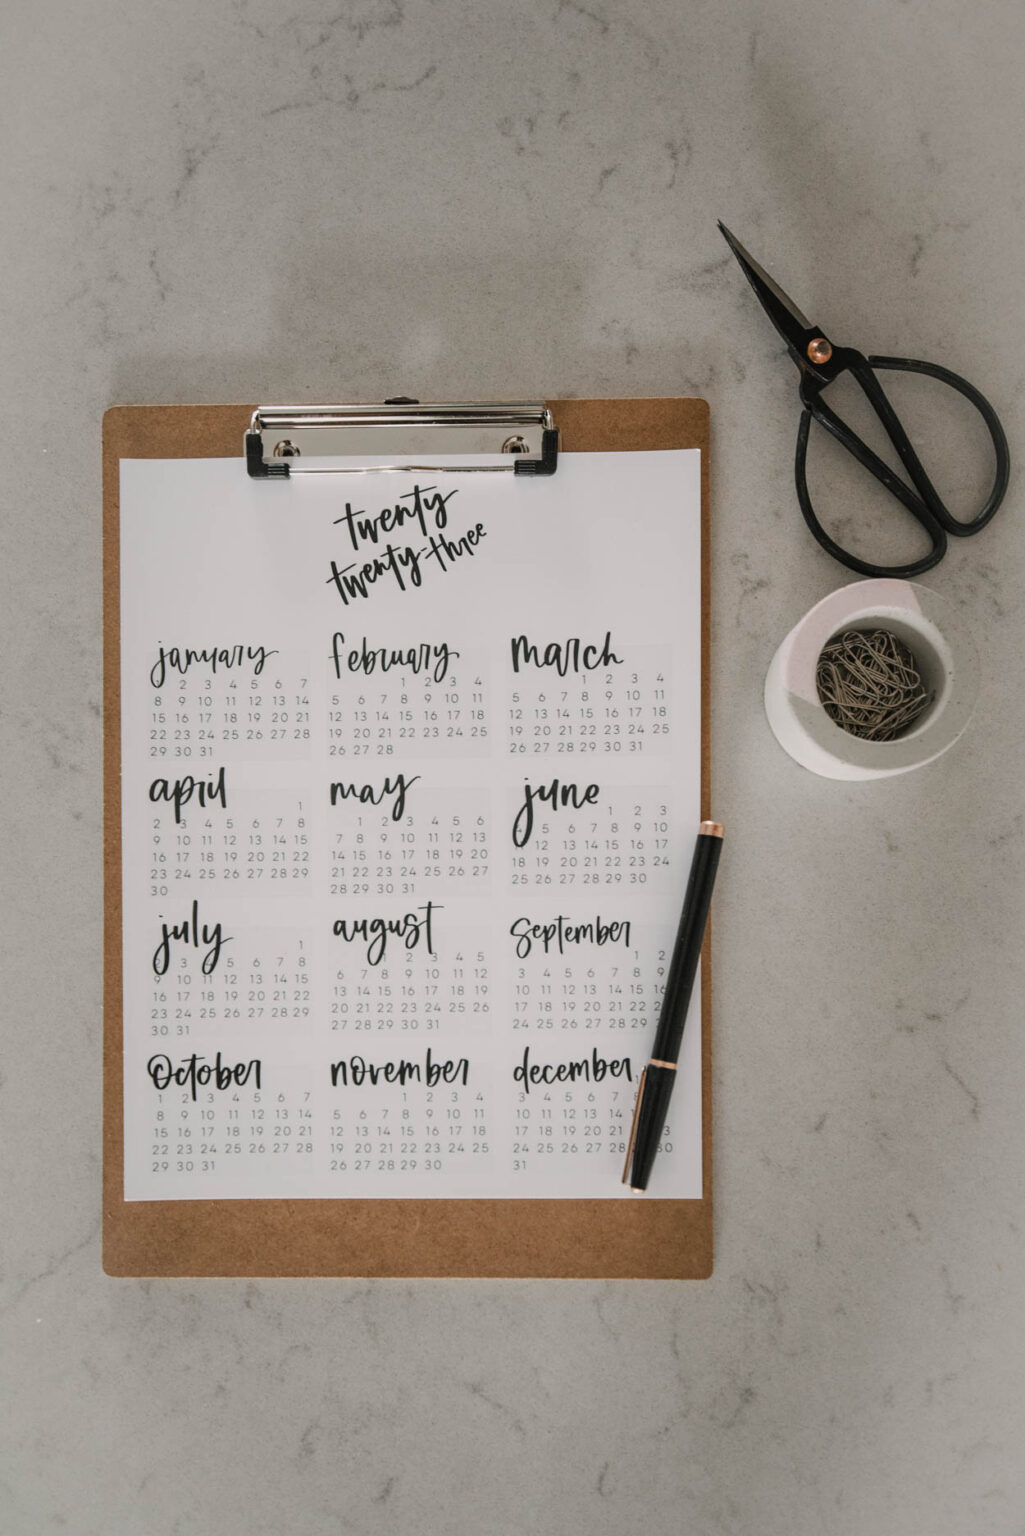 twenty
twenty-three
january
1 2 3 4 5 6 7
8 9 10 11 12 13 14
15 16 17 18 19 20 21
22 23 24 25 26 27 28
29 30 31
february
1 2 3 4
5 6 7 8 9 10 11
12 13 14 15 16 17 18
19 20 21 22 23 24 25
26 27 28
march
1 2 3 4
5 6 7 8 9 10 11
12 13 14 15 16 17 18
19 20 21 22 23 24 25
26 27 28 29 30 31
april
1
2 3 4 5 6 7 8
9 10 11 12 13 14 15
16 17 18 19 20 21 22
23 24 25 26 27 28 29
30
may
1 2 3 4 5 6
7 8 9 10 11 12 13
14 15 16 17 18 19 20
21 22 23 24 25 26 27
28 29 30 31
june
1 2 3
5 6 7 8 9 10
12 13 14 15 16 17
18 19 20 21 22 23 24
25 26 27 28 29 30
july
1
2 3 4 5 6 7 8
9 10 11 12 13 14 15
16 17 18 19 20 21 22
23 24 25 26 27 28 29
30 31
august
1 2 3 4 5
6 7 8 9 10 11 12
13 14 15 16 17 18 19
20 21 22 23 24 25 26
27 28 29 30 31
september
1 2
3 4 5 6 7 8 9
10 11 12 13 14 15 16
17 18 19 20 21 22
24 25 26 27 28 29
october
1 2 3 4 5 6 7
8 9 10 11 12 13 14
15 16 17 18 19 20 21
22 23 24 25 26 27 28
29 30 31
november
1 2 3 4
5 6 7 8 9 10 11
12 13 14 15 16 17 18
19 20 21 22 23 24 25
26 27 28 29 30
december
3 4 5 6 7 8
10 11 12 13 14
17 18 19 20 21
24 25 26 27 28 30
31